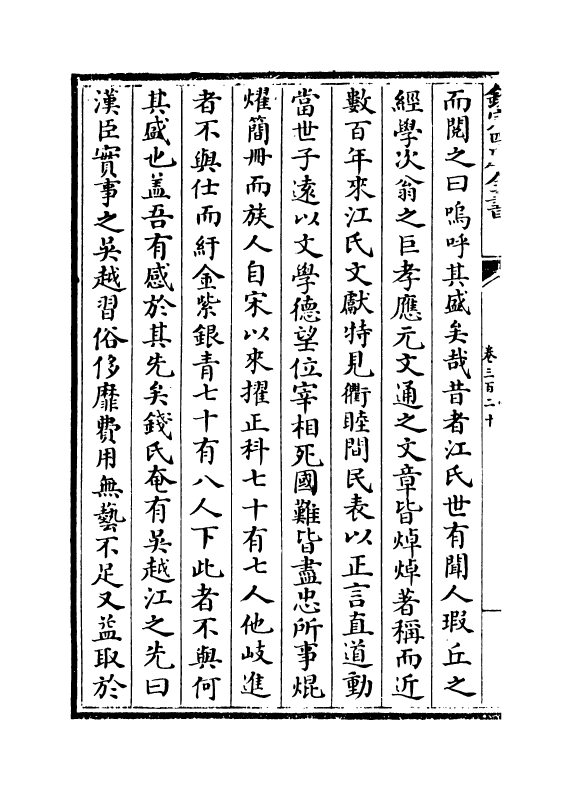 欽定四庫全書
卷三百二十
而閱之曰嗚呼其盛矣哉昔者江氏世有聞人瑕丘之
經學次翁之巨孝應元文通之文章皆焯焯著稱而近
數百年來江氏文獻特見衢睦間民表以正言直道動
當世子遠以文學德望位宰相死國難皆盡忠所事焜
燿簡冊而族人自宋以來擢正科七十有七人他岐進
者不與仕而紆金紫銀青七十有八人下此者不與何
其盛也盖吾有感於其先矣錢氏奄有吳越江之先曰
漢臣實事之吳越習俗侈靡費用無藝不足又益取於